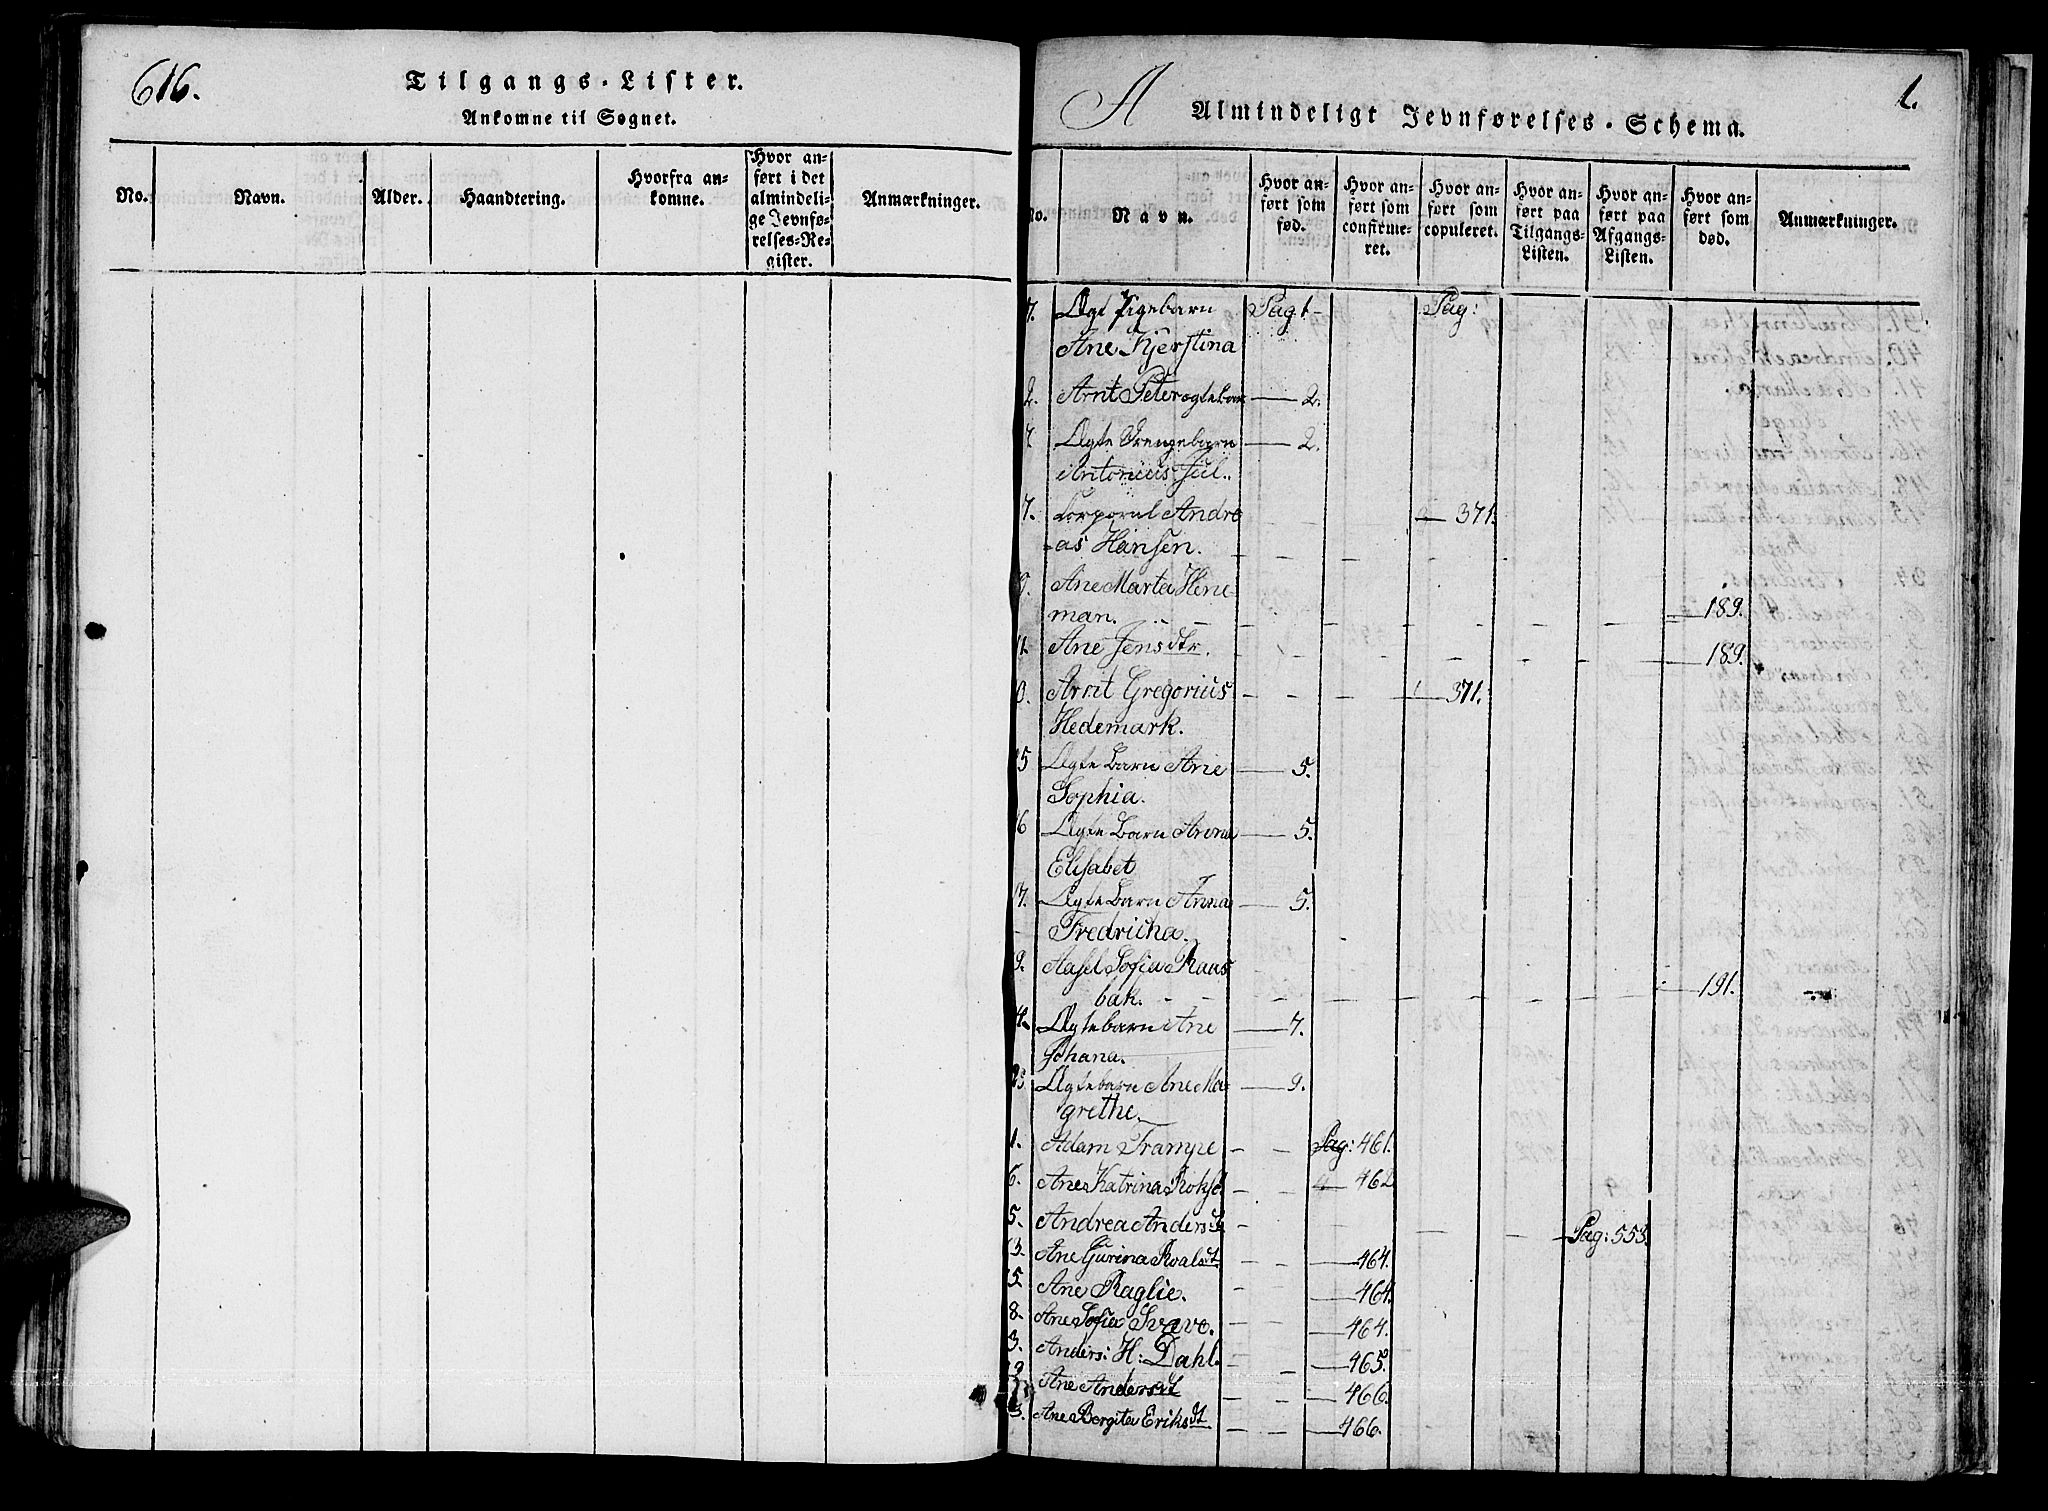 616.
Tilgangs-Lister.
Ankomne til Sognet.
No.
Navn.
Alder.
Haandtering.
Hvorfra an-
komne.
Hvor an-
ført i det
almindeli-
ge Jevnfø-
relses-Re-
gister.
Anmærkninger.
A
Almindeligt Jevnførelses-Schema.
1.
No.
Navn.
Hvor an-
ført som
fød.
Hvor an-
ført som
confirme-
ret.
Hvor an-
ført som
copuleret.
Hvor an-
ført paa
Tilgangs-
Listen.
Hvor an-
ført paa
Afgangs-
Listen.
Hvor an-
ført som
død.
Anmærkninger.
7. Ægt Pigebarn Pag 1 Pag:
Ane Kjerstina
2. Arnt Peter ægtebarn 2.
7 Ægte Drengebarn 2.
Antonius Jul..
7. Corporal Andre 371.
as Hansen.
9. Ane Marta Hene
man. 189.
1. Ane Jensdtr. 189.
0. Arnt Gregorius 371.
Hedemark.
5 Ægte Barn Ane 5.
Sophia.
6 Ægte Barn Anna 5.
Elisabet
7. Ægte Barn Anna 5.
Fredricha.
9. Aasel Sofia Raus
bak. 191.
4. Ægtebarn Ane 7.
Johana.
25. Ægtebarn Ane Ma 9.
grethe.
1. Adam Trampe Pag: 461.
6. Ane Katrina 462
5. Andrea Andersd Pag: 553.
3. Ane Gurina Roalsdt 464.
5 Ane Raglie. 464.
8. Ane Sofia Svave. 464.
3. Anders: H: Dahl. 465.
9 Ane Andersdt 466.
3. Ane Bergita Eriksdt 466.